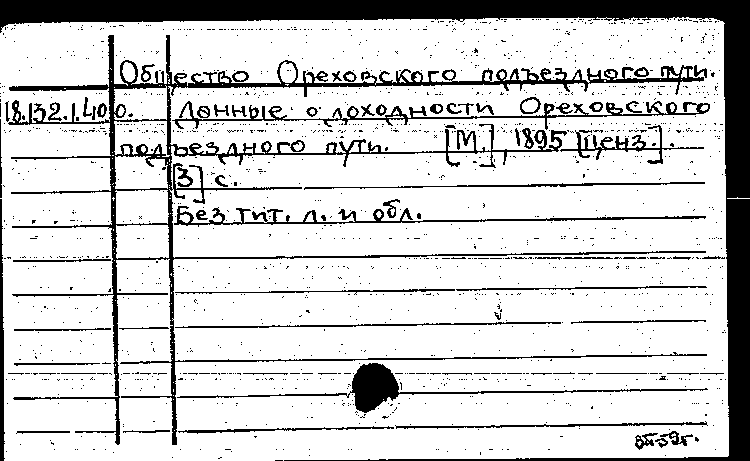 Общество Ореховского подъездного пути.
18.132.1.400. Данные о доходности Ореховского
подъездного пути. [М.], 1895 [ценз.].
[3] с.
Без тит. л. и обл.